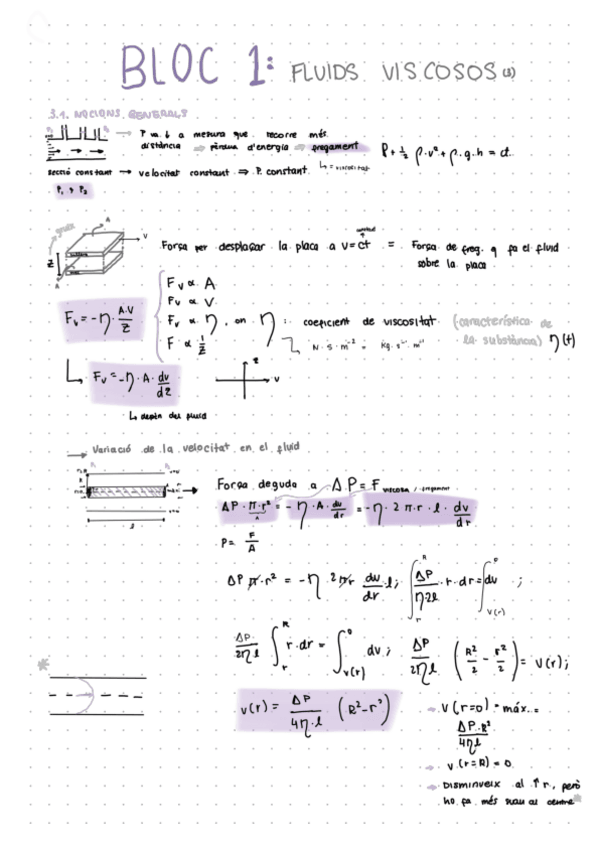 BLOC 1: FLUIDS VISCOSOS (3)
3.1. NOCIONS GENERALS
P va ↓ a mesura que recorre més
distància → pèrdua d'energia → fregament
↳ = viscositat
P + ½ ρ·v² + ρ·g·h = ct.
secció constant → velocitat constant ⇒ P. constant
P₁ > P₂
A
v
z
A
Força per desplaçar la placa a v=ct = Força de freg. q fa el fluid
sobre la placa
Fv ∝ A
Fv ∝ V
Fv ∝ η, on η: coeficient de viscositat (característica de
la substància) η(t)
F ∝ 1/z
N·s·m⁻² = Kg·s⁻¹·m⁻¹
Fv = -η · A·V/z
↳ Fv = -η·A· dv/dz
z
v
↳ depèn del fluid
→ Variació de la velocitat en el fluid
l
Força deguda a ΔP = F viscosa / fregament
ΔP · π·r² = -η · A · dv/dr = -η · 2π·r · l · dv/dr
A
P = F/A
ΔP π·r² = -η 2πr dv/dr · l; ∫ᵣᴿ ΔP/η·2l · r·dr = ∫v(r)⁰ dv ;
ΔP/2ηl ∫ᵣᴿ r·dr = ∫v(r)⁰ dv ; ΔP/2ηl (R²/2 - r²/2) = v(r);
*
v(r) = ΔP/4η·l (R²-r²)
→ v(r=0) = màx. =
ΔP·R²/4ηl
→ v(r=R) = 0
→ Disminueix al ↑r, però
ho fa més suau al centre *